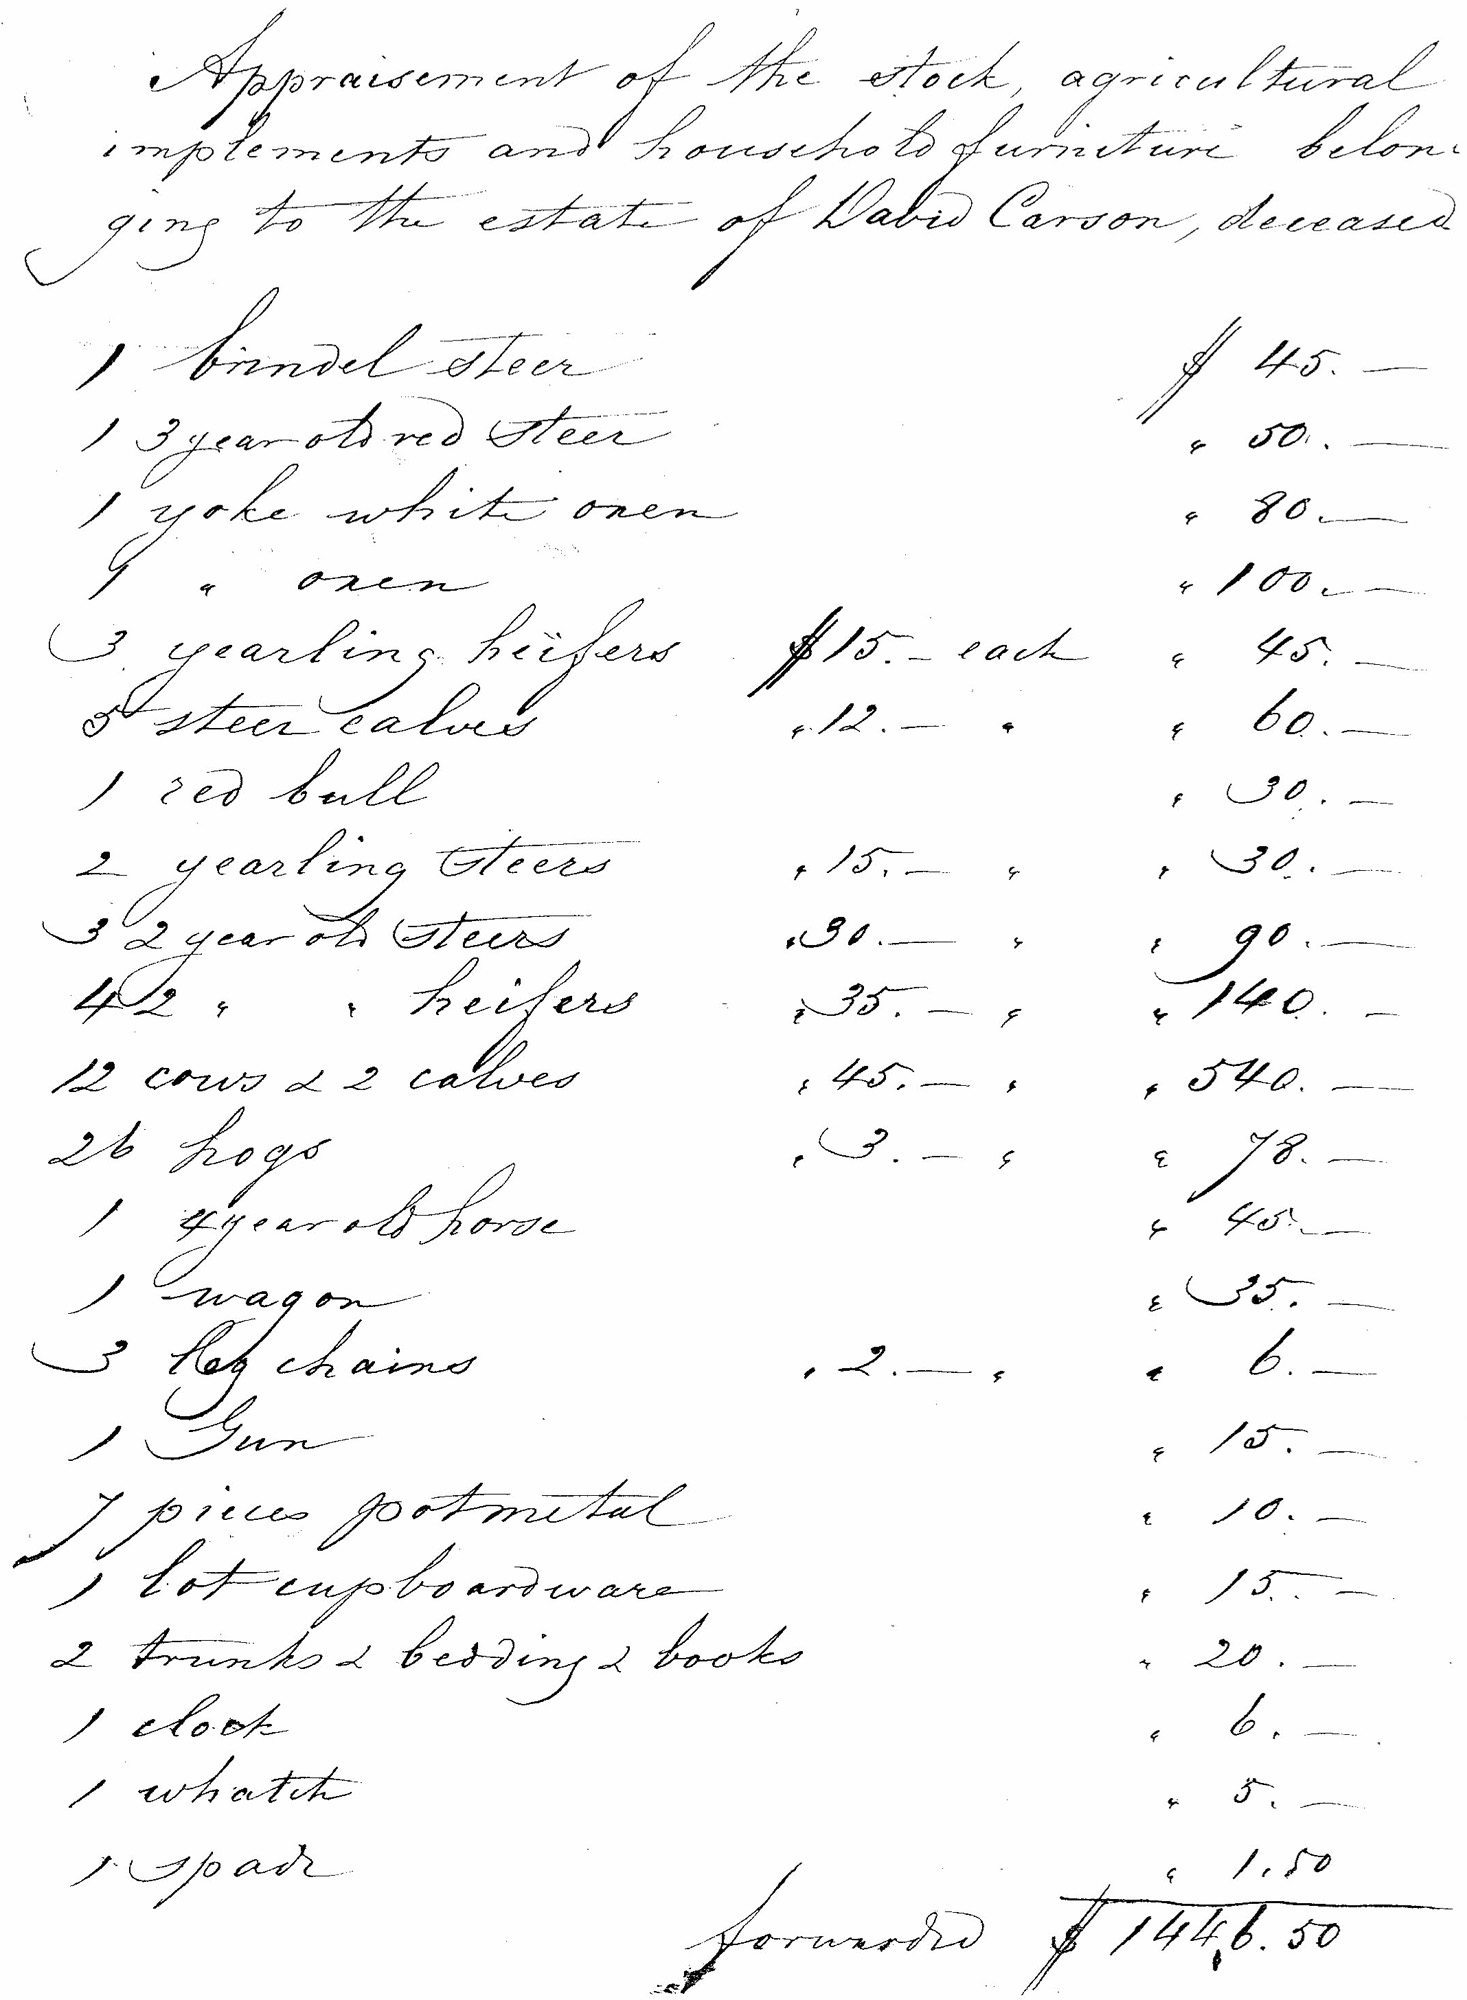 Appraisement of the stock, agricultural
implements and household furniture belon-
ging to the estate of David Carson, deceased
1 brindel steer $ 45. —
1 3 year old red steer " 50. —
1 yoke white oxen " 80. —
1 " oxen " 100. —
3 yearling heifers $15. — each " 45. —
5 steer calves " 12. — " " 60. —
1 red bull " 30. —
2 yearling steers " 15. — " " 30. —
3 2 year old steers " 30. — " " 90. —
4 2 " " heifers " 35. — " " 140. —
12 cows & 2 calves " 45. — " " 540. —
26 hogs " 3. — " " 78. —
1 4 year old horse " 45. —
1 wagon " 35. —
3 log chains " 2. — " " 6. —
1 Gun " 15. —
7 pieces potmetal " 10. —
1 lot cupboardware " 15. —
2 trunks & bedding & books " 20. —
1 clock " 6. —
1 whatch " 5. —
1 spade " 1.50
forwarded $ 1446.50